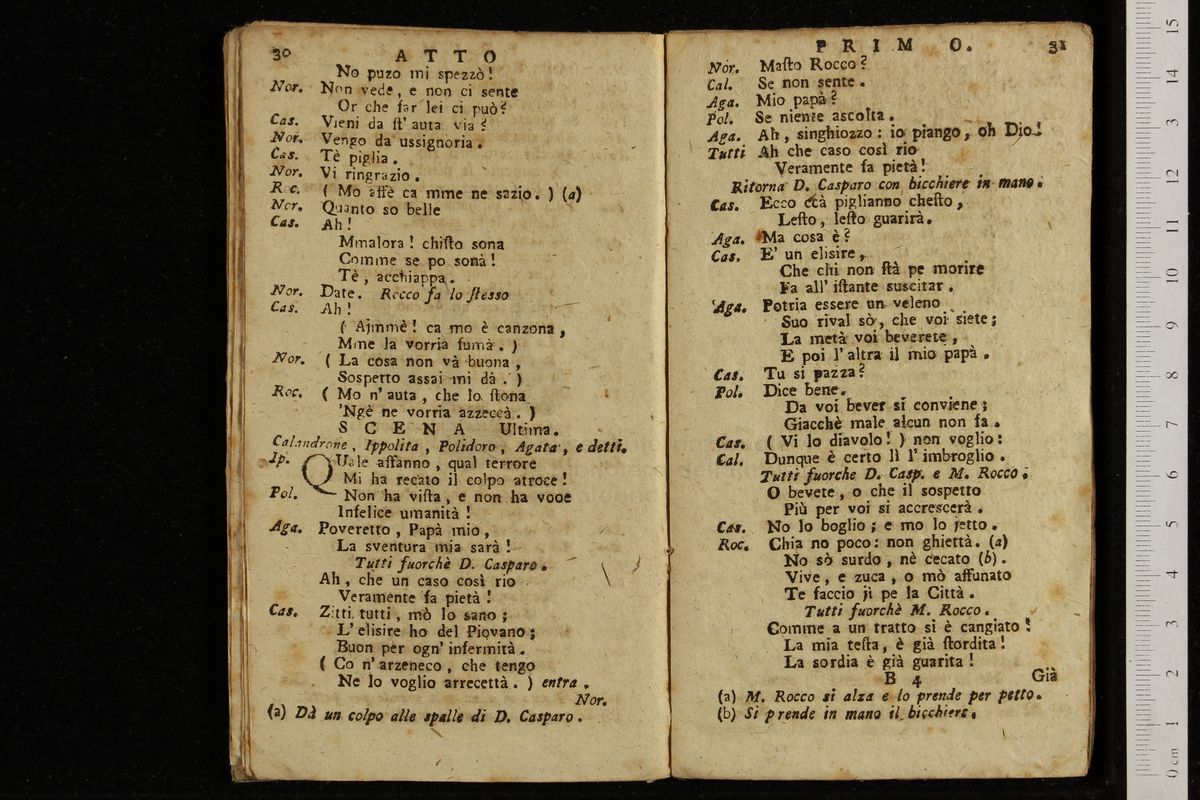 30 ATTO
No puzo mi spezzò!
Nor. Non vede, e non ci sente
Or che far lei ci può?
Cas. Vieni da ſt' auta via?
Nor. Vengo da ussignoria.
Cas. Tè piglia.
Nor. Vi ringrazio.
Roc. ( Mo affè ca mme ne sazio. ) (a)
Nor. Quanto so belle
Cas. Ah!
Mmalora! chiſto sona
Comme se po sonà!
Tè, acchiappa.
Nor. Date. Rocco fa lo ſtesso
Cas. Ah!
( Ajmmè! ca mo è canzona,
Mme la vorria fumà. )
Nor. ( La cosa non và buona,
Sospetto assai mi dà. )
Roc. ( Mo n' auta, che lo ſtona
'Ngè ne vorria azzeccà. )
SCENA Ultima.
Calandrone, Ippolita, Polidoro, Agata, e detti.
Ip. QUale affanno, qual terrore
Mi ha recato il colpo atroce!
Pol. Non ha viſta, e non ha voce
Infelice umanità!
Aga. Poveretto, Papà mio,
La sventura mia sarà!
Tutti fuorchè D. Casparo.
Ah, che un caso così rio
Veramente fa pietà!
Cas. Zitti tutti, mò lo sano;
L' elisire ho del Piovano;
Buon per ogn' infermità.
( Co n' arzeneco, che tengo
Ne lo voglio arrecettà. ) entra.
Nor.
(a) Dà un colpo alle spalle di D. Casparo.
PRIMO. 31
Nor. Maſto Rocco?
Cal. Se non sente.
Aga. Mio papà?
Pol. Se niente ascolta.
Aga. Ah, singhiozzo: io piango, oh Dio!
Tutti Ah che caso così rio
Veramente fa pietà!
Ritorna D. Casparo con bicchiere in mano.
Cas. Ecco ccà piglianno cheſto,
Leſto, leſto guarirà.
Aga. Ma cosa è?
Cas. E' un elisire,
Che chi non ſtà pe morire
Fa all' iſtante suscitar.
Aga. Potria essere un veleno
Suo rival sò, che voi siete;
La metà voi beverete,
E poi l' altra il mio papà.
Cas. Tu si pazza?
Pol. Dice bene.
Da voi bever si conviene;
Giacchè male alcun non fa.
Cas. ( Vi lo diavolo! ) non voglio:
Cal. Dunque è certo lì l' imbroglio.
Tutti fuorche D. Casp. e M. Rocco.
O bevete, o che il sospetto
Più per voi si accrescerà.
Cas. No lo boglio; e mo lo jetto.
Roc. Chia no poco: non ghiettà. (a)
No sò surdo, nè cecato (b).
Vive, e zuca, o mò affunato
Te faccio jì pe la Città.
Tutti fuorchè M. Rocco.
Comme a un tratto si è cangiato!
La mia teſta, è già ſtordita!
La sordia è già guarita!
B 4 Già
(a) M. Rocco si alza e lo prende per petto.
(b) Si prende in mano il bicchiere.
15
14
13
12
11
10
9
8
7
6
5
4
3
2
1
0 cm